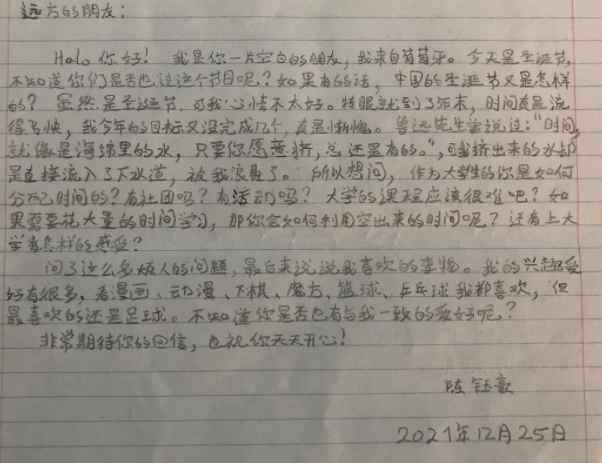 远方的朋友：
Halo 你好！我是你一片空白的朋友，我来自葡萄牙。今天是圣诞节，
不知道你们是否也过这个节日呢？如果有的话，中国的圣诞节又是怎样
的？虽然是圣诞节，可我心情不太好。转眼就到了年末，时间真是流
得飞快，我今年的目标又没完成几个，真是惭愧。鲁迅先生曾说过：“时间，
就像是海绵里的水，只要你愿意挤，总还是有的。”，可我挤出来的水却
是直接流入了下水道，被我浪费了。所以想问，作为大学生的你是如何
分配时间的？有社团吗？有活动吗？大学的课程应该很难吧？如
果需要花大量的时间学习，那你会如何利用空出来的时间呢？还有上大
学有怎样的感受？
问了这么多烦人的问题，最后来说说我喜欢的事物。我的兴趣爱
好有很多，看漫画、动漫、下棋、魔方、篮球、乒乓球我都喜欢，但
最喜欢的还是足球。不知道你是否也有与我一致的爱好呢？
非常期待你的回信，也祝你天天开心！
陈钰
2021年12月25日